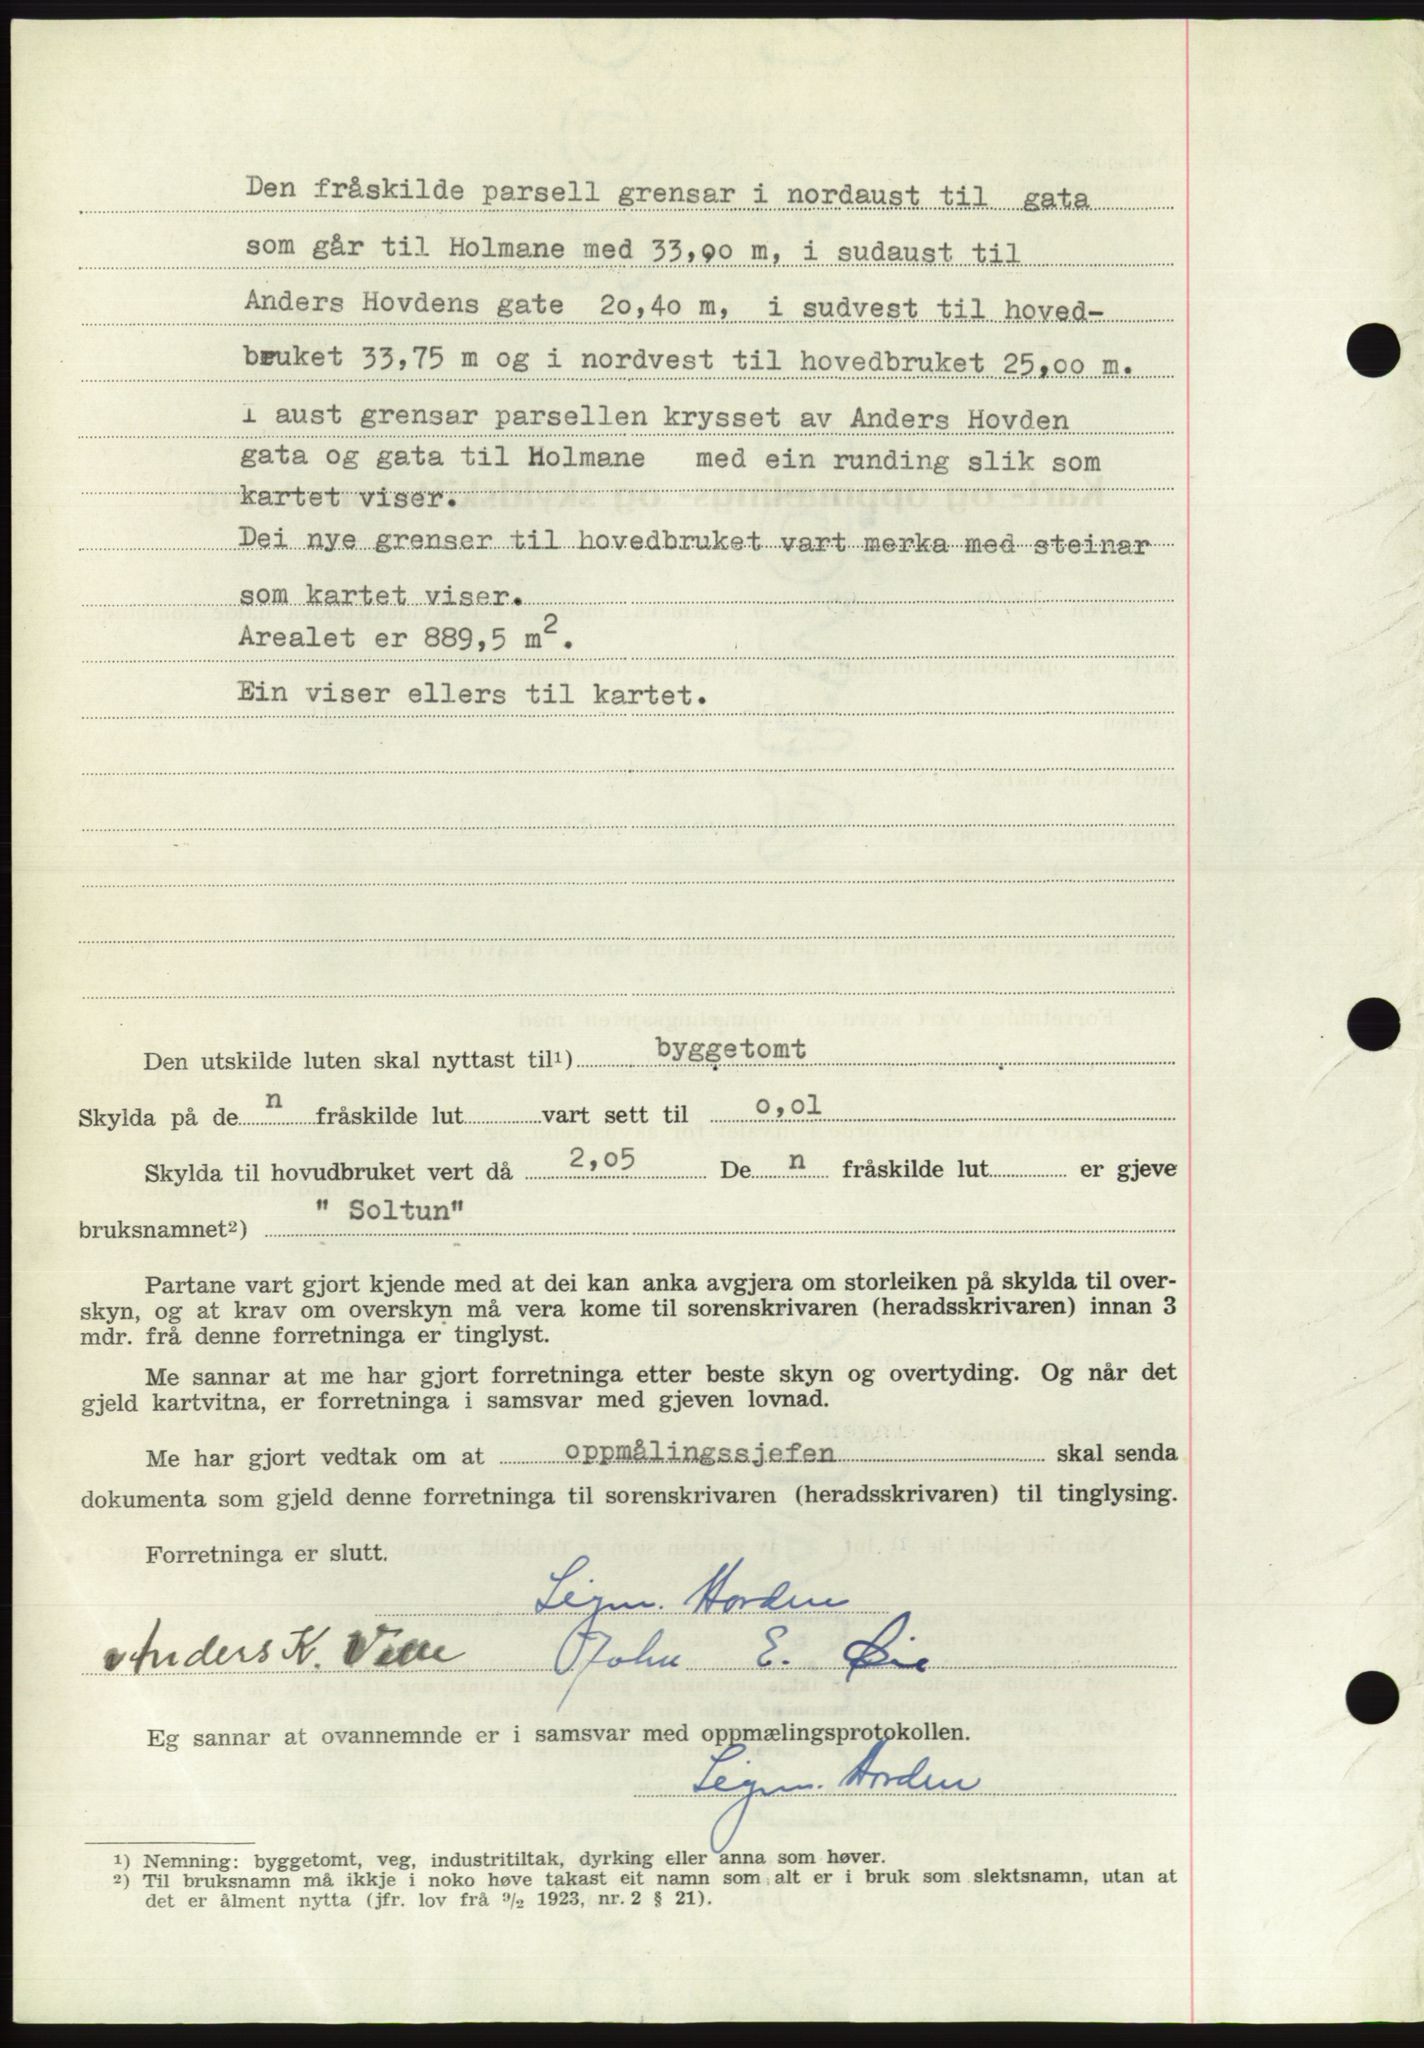 Den fråskilde parsell grensar i nordaust til gata
som går til Holmane med 33,90 m, i sudaust til
Anders Hovdens gate 20,40 m, i sudvest til hoved-
bruket 33,75 m og i nordvest til hovedbruket 25,00 m.
I aust grensar parsellen krysset av Anders Hovden
gata og gata til Holmane med ein runding slik som
kartet viser.
Dei nye grenser til hovedbruket vart merka med steinar
som kartet viser.
Arealet er 889,5 m2.
Ein viser ellers til kartet.
Den utskilde luten skal nyttast til1) byggetomt
Skylda på de n fråskilde lut vart sett til 0,01
Skylda til hovudbruket vert då 2,05 De n fråskilde lut er gjeve
bruksnamnet2) " Soltun"
Partane vart gjort kjende med at dei kan anka avgjera om storleiken på skylda til over-
skyn, og at krav om overskyn må vera kome til sorenskrivaren (heradsskrivaren) innan 3
mdr. frå denne forretninga er tinglyst.
Me sannar at me har gjort forretninga etter beste skyn og overtyding. Og når det
gjeld kartvitna, er forretninga i samsvar med gjeven lovnad.
Me har gjort vedtak om at oppmålingssjefen skal senda
dokumenta som gjeld denne forretninga til sorenskrivaren (heradsskrivaren) til tinglysing.
Forretninga er slutt.
Sigm. Hovden
Anders K. Velle John E. Øie
Eg sannar at ovannemnde er i samsvar med oppmælingsprotokollen.
Sigm. Hovden
1) Nemning: byggetomt, veg, industritiltak, dyrking eller anna som høver.
2) Til bruksnamn må ikkje i noko høve takast eit namn som alt er i bruk som slektsnamn, utan at
det er ålment nytta (jfr. lov frå 9/2 1923, nr. 2 § 21).